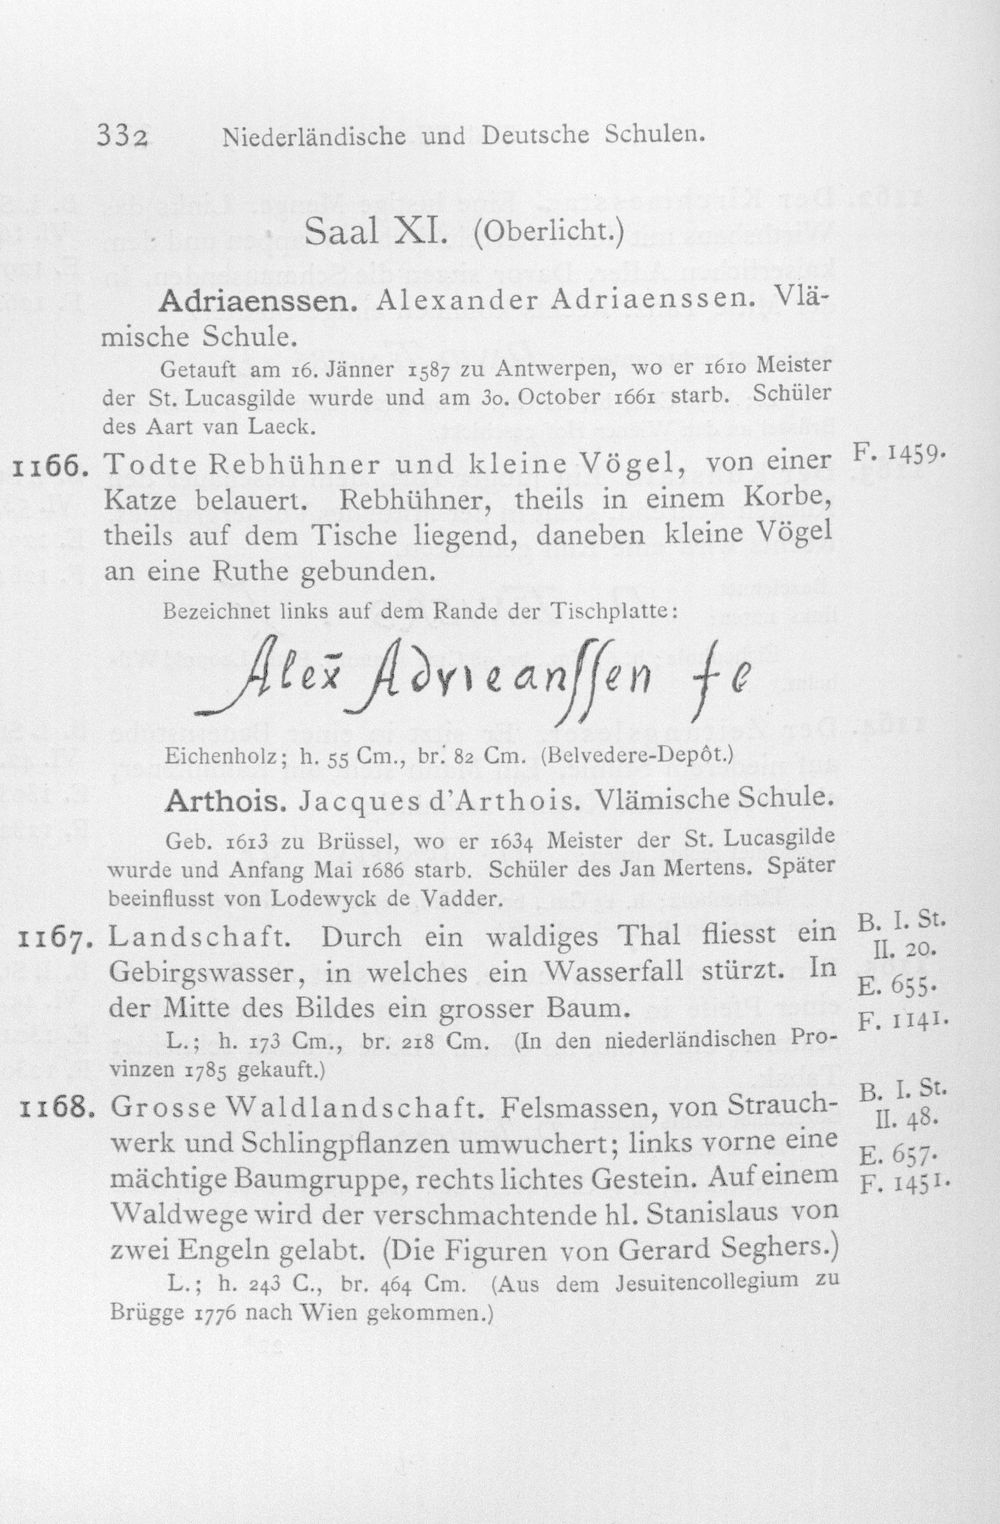 332 Niederländische und Deutsche Schulen.
Saal XI. (Oberlicht.)
Adriaenssen. Alexander Adriaenssen. Vlä-
mische Schule.
Getauft am 16. Jänner 1587 zu Antwerpen, wo er 1610 Meister
der St. Lucasgilde wurde und am 30. October 1661 starb. Schüler
des Aart van Laeck.
1166. Todte Rebhühner und kleine Vögel, von einer F. 1459.
Katze belauert. Rebhühner, theils in einem Korbe,
theils auf dem Tische liegend, daneben kleine Vögel
an eine Ruthe gebunden.
Bezeichnet links auf dem Rande der Tischplatte:
Alex̄ Adrieanssen fe
Eichenholz; h. 55 Cm., br. 82 Cm. (Belvedere-Depôt.)
Arthois. Jacques d'Arthois. Vlämische Schule.
Geb. 1613 zu Brüssel, wo er 1634 Meister der St. Lucasgilde
wurde und Anfang Mai 1686 starb. Schüler des Jan Mertens. Später
beeinflusst von Lodewyck de Vadder.
1167. Landschaft. Durch ein waldiges Thal fliesst ein B. I. St.
Gebirgswasser, in welches ein Wasserfall stürzt. In II. 20.
E. 655.
der Mitte des Bildes ein grosser Baum. F. 1141.
L.; h. 173 Cm., br. 218 Cm. (In den niederländischen Pro-
vinzen 1785 gekauft.)
1168. Grosse Waldlandschaft. Felsmassen, von Strauch- B. I. St.
II. 48.
werk und Schlingpflanzen umwuchert; links vorne eine E. 657.
mächtige Baumgruppe, rechts lichtes Gestein. Auf einem F. 1451.
Waldwege wird der verschmachtende hl. Stanislaus von
zwei Engeln gelabt. (Die Figuren von Gerard Seghers.)
L.; h. 243 C., br. 464 Cm. (Aus dem Jesuitencollegium zu
Brügge 1776 nach Wien gekommen.)